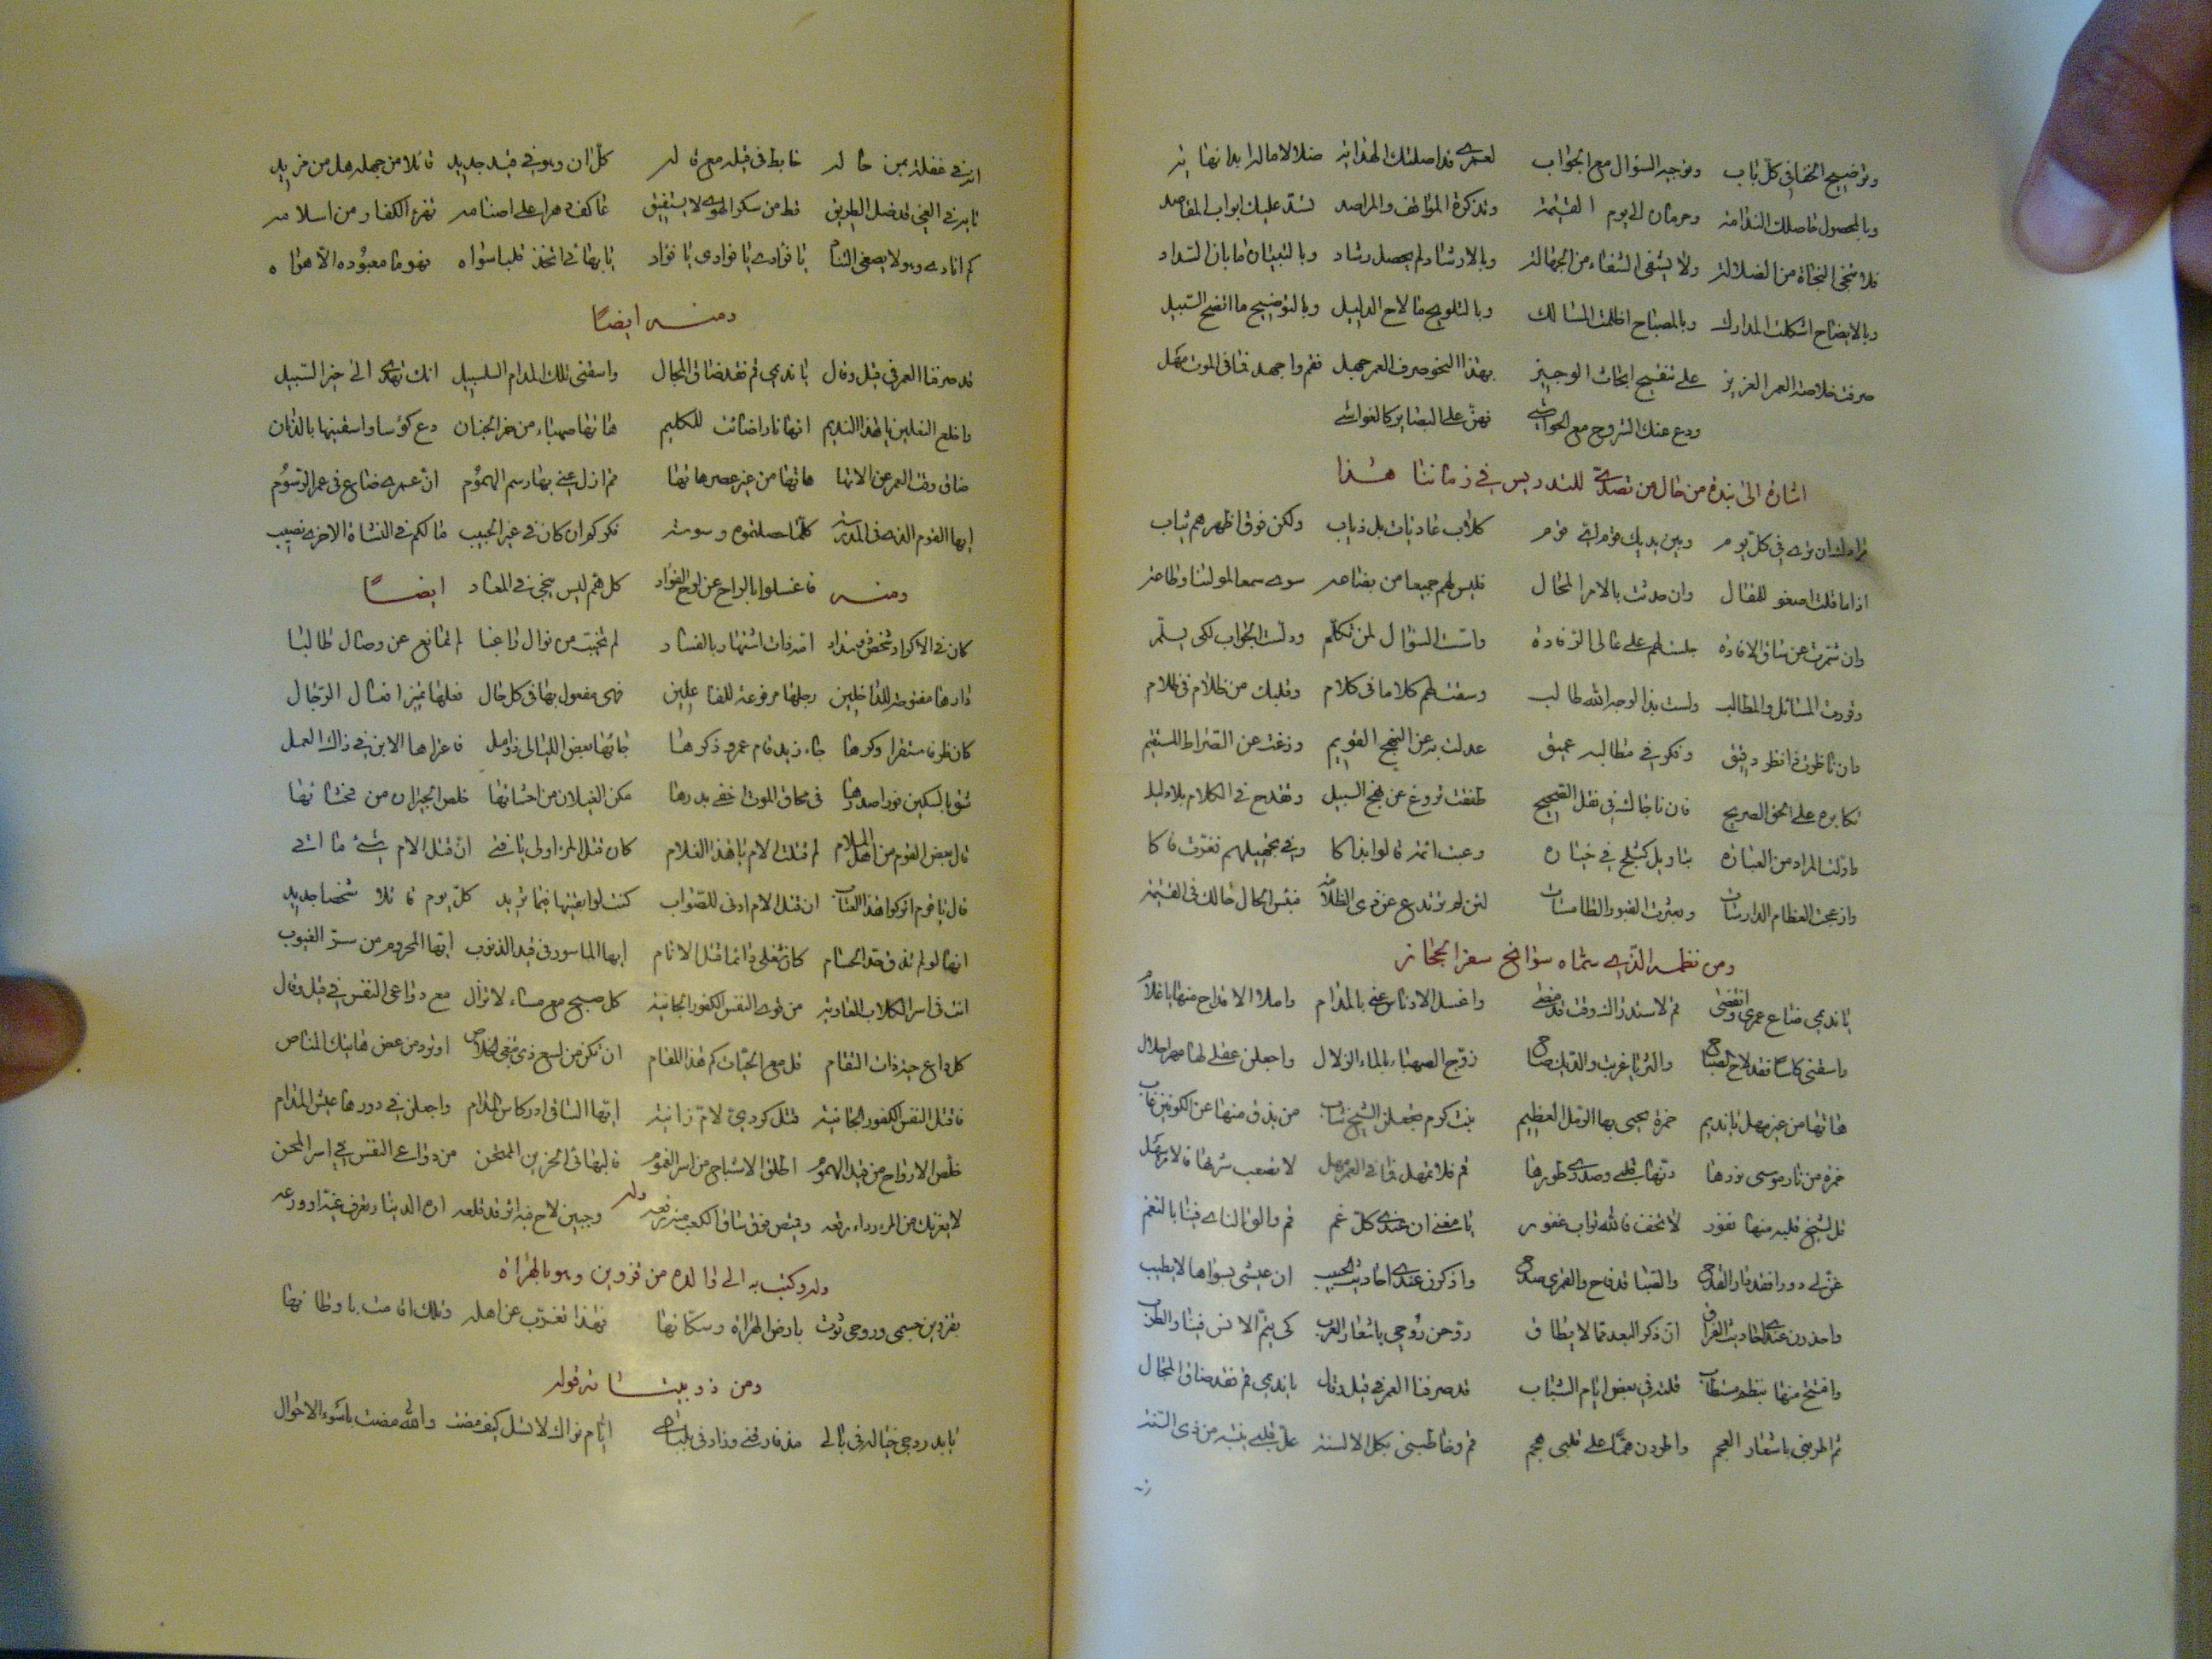 وتوضيح الخفا في كل باب وتوجيه السؤال مع الجواب لعمري قد اضلتك الهدايه ضلالا ماله ابدا نهايه
وبالمحصول حاصلك الندامه وحرمان الى يوم القيمه وتذكرة المواقف والمراصد تسد عليك ابواب المقاصد
فلا تنجي النجاة من الضلاله ولا يشفي الشفاء من الجهاله وبالارشاد لم يحصل رشاد وبالتبيان ما بان السداد
وبالايضاح اشكلت المدارك وبالمصباح اظلمت المسالك وبالتلويح ما لاح الدليل وبالتوضيح ما اتضح السبيل
صرفت خلاصة العمر العزيز على تنقيح ابحاث الوجيز بهذا النحو صرف العمر جهل فقم واجهد فما في الموت مهل
ودع عنك الشروح مع الحواشي فهن على البصاير كالغواشي
اشارة الى نبذة من حال من تصدى للتدريس في زماننا هذا
مرامك ان ترى في كل يوم وبين يديك قوم اي قوم كلاب عاديات بل ذياب ولكن فوق اظهرهم ثياب
اذا ما قلت اصغو للمقال وان حدثت بالامر المحال فليس لهم جميعا من بضاعه سوى سمعا لمولنا وطاعه
وان شمرت عن ساق الافاده جلست لهم على عالي الرفاده واسست السؤال لمن تكلم ودلست الجواب لكى يسلم
وقررت المسائل والمطالب ولست بذا لوجه الله طالب وسقت لهم كلاما في كلام وقلبك من ظلام في ظلام
وان ناظرت ذا نظر دقيق وفكر في مطالبه عميق عدلت به عن النهج القويم وزغت عن الصراط المستقيم
تكابره على الحق الصريح فان ناجاك في نقل الصحيح طفقت تروغ عن نهج السبيل وتقدح في الكلام بلا دليل
واولت المراد من العباره بتاويل كثلج في خياره وعبت ائمة قالوا بذاكا وفي تجهيلهم تفرت فاكا
وازعجت العظام الدارسات وبعثرت القبور الطامسات لئن لم ترتدع عن ذي الظلامه فبئس الحال حالك في القيمه
ومن نظمه الذي سماه سوانح سفر الحجاز
يا نديمي ضاع عمري وانقضى قم لاستدراك وقت قد مضى واغسل الادناس عني بالمدام واملا الاقداح منها يا غلام
واسقني كاسا فقد لاح الصباح والثريا غربت والديك صاح زوج الصهباء بالماء الزلال واجعلن عقلي لها مهرا حلال
هاتها من غير مهل يا نديم خمرة يحيى بها العظم الرميم بنت كرم تجعلن الشيخ شاب من يذق منها عن الكونين غاب
خمرة من نار موسى نورها دنها قلبي وصدري طورها قم فلا تمهل فما في العمر مهل لا تصعب شربها فالامر سهل
قل لشيخ قلبه منها نفور لا تخف فالله تواب غفور يا مغني ان عندي كل غم قم والق الناى فينا بالنغم
غن لي دورا فقد دار القدح والصبا قد فاح والقمري صدح واذكرن عندى احاديث الحبيب ان عيشى بسواها لا يطيب
واحذرن عندي احاديث الفراق ان ذكر البعد مما لا يطاق روحن روحي باشعار العرب كى يتم الانس فينا والطرب
وافتتح منها بنظم مستطاب قلته في بعض ايام الشباب قد صرفنا العمر في قيل وقال يا نديمي قم فقد ضاق المجال
ثم اطربنى باشعار العجم واطردن هما على قلبى هجم قم وخاطبني بكل الالسنه عل قلبي ينتبه من ذى السنه
انه في غفلة من حاله خابط في قيله مع قاله كل ان وهو في قيد جديد قائلا من جهله هل من مزيد
تايه في الغي قد ضل الطريق قط من سكر الهوى لا يستفيق عاكف دهرا على اصنامه تنفر الكفار من اسلامه
كم انادى وهو لا يصغى التناد يا فؤادى يا فؤادى يا فؤاد يا بهائي اتخذ قلبا سواه فهو ما معبوده الا هواه
ومنه ايضا
قد صرفنا العمر في قيل وقال يا نديمي قم فقد ضاق المجال واسقنى تلك المدام السلسبيل انها تهدى الى خير السبيل
واخلع النعلين يا هذا النديم انها نار اضائت للكليم هاتها صهباء من خمر الجنان دع كؤسا واسقنيها بالدنان
ضاق وقت العمر عن الاتها هاتها من غير عصر هاتها قم ازل عني بها رسم الهموم ان عمري ضاع في علم الرسوم
ايها القوم الذي في المدرسه كلما حصلتموه وسوسه فكركم ان كان في غير الحبيب مالكم في النشاة الاخرى نصيب
ومنه فاغسلوا بالراح عن لوح الفؤاد كل علم ليس ينجي في المعاد ايضا
كان في الاكراد شخص ذو سداد امه ذات اشتهار بالفساد لم تخيب من نوال راغبا لم تمانع عن وصال طالبا
دارها مفتوحة للداخلين رجلها مرفوعة للفاعلين فهى مفعول بها في كل حال فعلها تمييز افعال الرجال
كان ظرفا مستقرا وكرها جاء زيد قام عمرو ذكرها جائها بعض الليالي ذو امل فاعتراها الابن في ذاك العمل
شق بالسكين فورا صدرها في محاق الموت اخفى بدرها مكن الغيلان من احشائها خلص الجيران من فحشائها
قال بعض القوم من اهل الملام لم قتلت الام يا هذا الغلام كان قتل المرء اولى يا فتى ان قتل الام شئ ما اتى
قال يا قوم اتركوا هذا العتاب ان قتل الام ادنى للصواب كنت لو ابقيتها فيما تريد كل يوم قاتلا شخصا جديد
انها لو لم تذق حد الحسام كان شغلى دائما قتل الانام ايها الماسور في قيد الذنوب ايها المحروم من سر الغيوب
انت في اسر الكلاب العاديه من قوى النفس الكفور الجانيه كل صبح مع مساء لا تزال مع دواعى النفس في قيل وقال
كل داع حية ذات التقام قل مع الحيات كم هذا المقام ان تكن من لسع ذى تبغى الخلاص او ترد من عض هاتيك المناص
فاقتل النفس الكفور الجانيه قتل كردي لام زانيه ايها الساقى ادر كاس المدام واجعلن في دورها عيشى المدام
خلص الارواح من قيد الهموم اطلق الاشباح من اسر الغموم فالبهائي الحزين الممتحن من دواعى النفس في اسر المحن
وله
لا يغرنك من المرء رداء رقعه وقميص فوق ساق الكعب منه رفعه وجبين لاح فيه اثر قد قلعه اره الدينار تعرف غيه او ورعه
وله وكتب به الى والده من قزوين وهو بالهراة
بقزوين جسمى وروحى ثوت بارض الهراة وسكانها فهذا تغرب عن اهله وتلك اقامت باوطانها
ومن دوبيتاته قوله
يا بدر دجى خياله في بالي مذ فارقني وزاد في بلبالي ايام نواك لا تسل كيف مضت والله مضت باسوء الاحوال